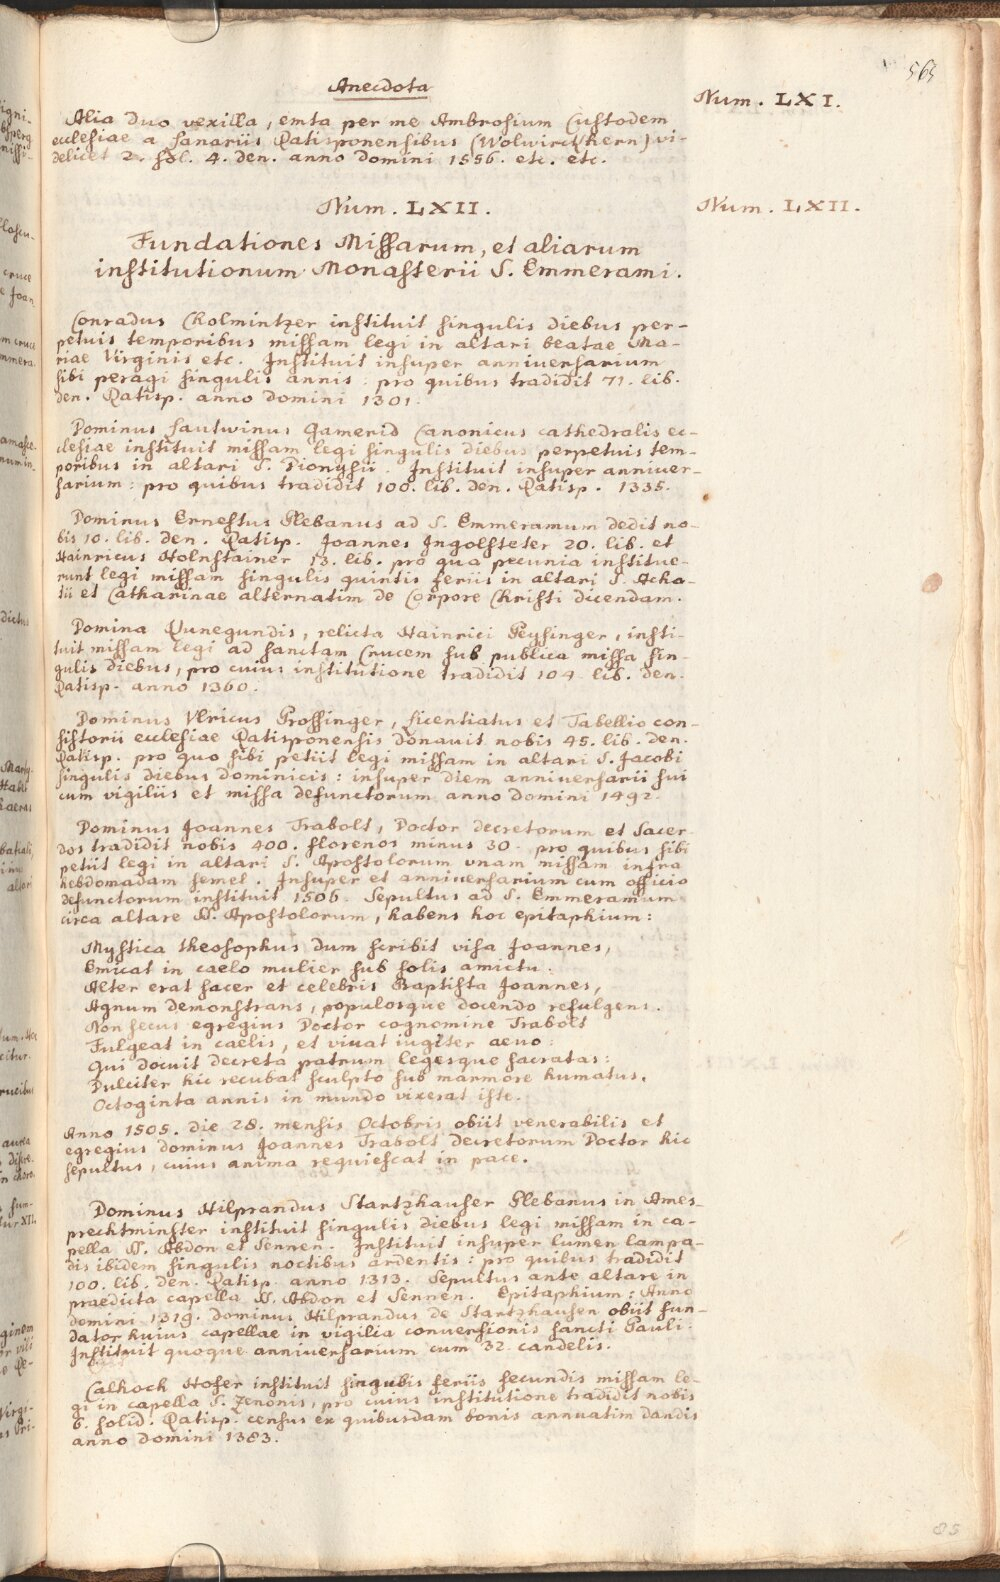 563
Anecdota
Num. LXI.
Alia duo vexilla, emta per me Ambrosium Custodem
ecclesiae a Lanariis Ratisponensibus (Wolwirckhern) vi-
delicet 2. sol. 4. den. anno Domini 1556. etc. etc.
Num. LXII.
Num. LXII.
Fundationes Missarum, et aliarum
institutionum Monasterii S. Emmerami.
Conradus Cholmintzer instituit singulis diebus per-
petuis temporibus missam legi in altari beatae Ma-
riae Virginis etc. Instituit insuper anniversarium
sibi peragi singulis annis: pro quibus tradidit 71. lib.
den. Ratisp. anno Domini 1301.
Dominus Gamerid Canonicus cathedralis ec-
clesiae instituit missam legi singulis diebus perpetuis tem-
poribus in altari S. Dionysii. Instituit insuper anniver-
sarium: pro quibus tradidit 100. lib. den. Ratisp. 1335.
Dominus Ernestus Plebanus ad S. Emmeramum dedit no-
bis 10. lib. den. Ratisp. Joannes Ingolsteter 20. lib. et
Hainricus Holnstainer 13. lib. pro qua pecunia institue-
runt legi missam singulis quintis feriis in altari S. Acha-
tii et Catharinae alternatim de Corpore Christi dicendam.
Domina Kunegundis, relicta Hainrici Peysinger, insti-
tuit missam legi ad sanctam Crucem sub publica missa sin-
gulis diebus, pro cuius institutione tradidit 104. lib. den.
Ratisp. anno 1360.
Dominus Vlricus Prossinger, licentiatus et Tabellio con-
sistorii ecclesiae Ratisponensis donauit nobis 45. lib. den.
Ratisp. pro quo sibi petiit legi missam in altari S. Jacobi
singulis diebus dominicis: insuper diem anniuersarii sui
cum vigiliis et missa defunctorum anno Domini 1492.
Dominus Joannes Trabolt, Doctor decretorum et Sacer-
dos tradidit nobis 400. florenos minus 30. pro quibus sibi
petiit legi in altari S. Apostolorum vnam missam infra
hebdomadam semel. Insuper et anniuersarium cum officio
defunctorum instituit 1506. Sepultus ad S. Emmeramum
circa altare SS. Apostolorum, habens hoc epitaphium:
Mystica theosophus dum scribit visa Joannes,
Emicat in caelo mulier sub solis amictu.
Alter erat sacer et celebris Baptista Joannes,
Agnum demonstrans, populosque docendo refulgens.
Non secus egregius Doctor cognomine Trabolt
Fulgeat in caelis, et viuat iugiter aeuo:
Qui docuit decreta patrum legesque sacratas:
Dulciter hic recubat sculpto sub marmore humatus.
Octoginta annis in mundo vixerat iste.
Anno 1505. die 28. mensis Octobris obiit venerabilis et
egregius dominus Joannes Trabolt decretorum Doctor hic
sepultus, cuius anima requiescat in pace.
Dominus Hilprandus Startzhauser Plebanus in Ames-
prechtminster instituit singulis diebus legi missam in ca-
pella SS. Abdon et Sennen. Instituit insuper lumen lampa-
dis ibidem singulis noctibus ardentis: pro quibus tradidit
100. lib. den. Ratisp. anno 1313. Sepultus ante altare in
praedicta capella SS. Abdon et Sennen. Epitaphium: Anno
domini 1319. dominus Hilprandus de Startzhausen obiit fun-
dator huius capellae in vigilia conuersionis sancti Pauli.
Instituit quoque anniuersarium cum 32. candelis.
Calhoch Hofer instituit singulis feriis secundis missam le-
gi in capella S. Zenonis, pro cuius institutione tradidit nobis
6. solid. Ratisp. census ex quibusdam bonis annuatim dandis
anno domini 1383.
85